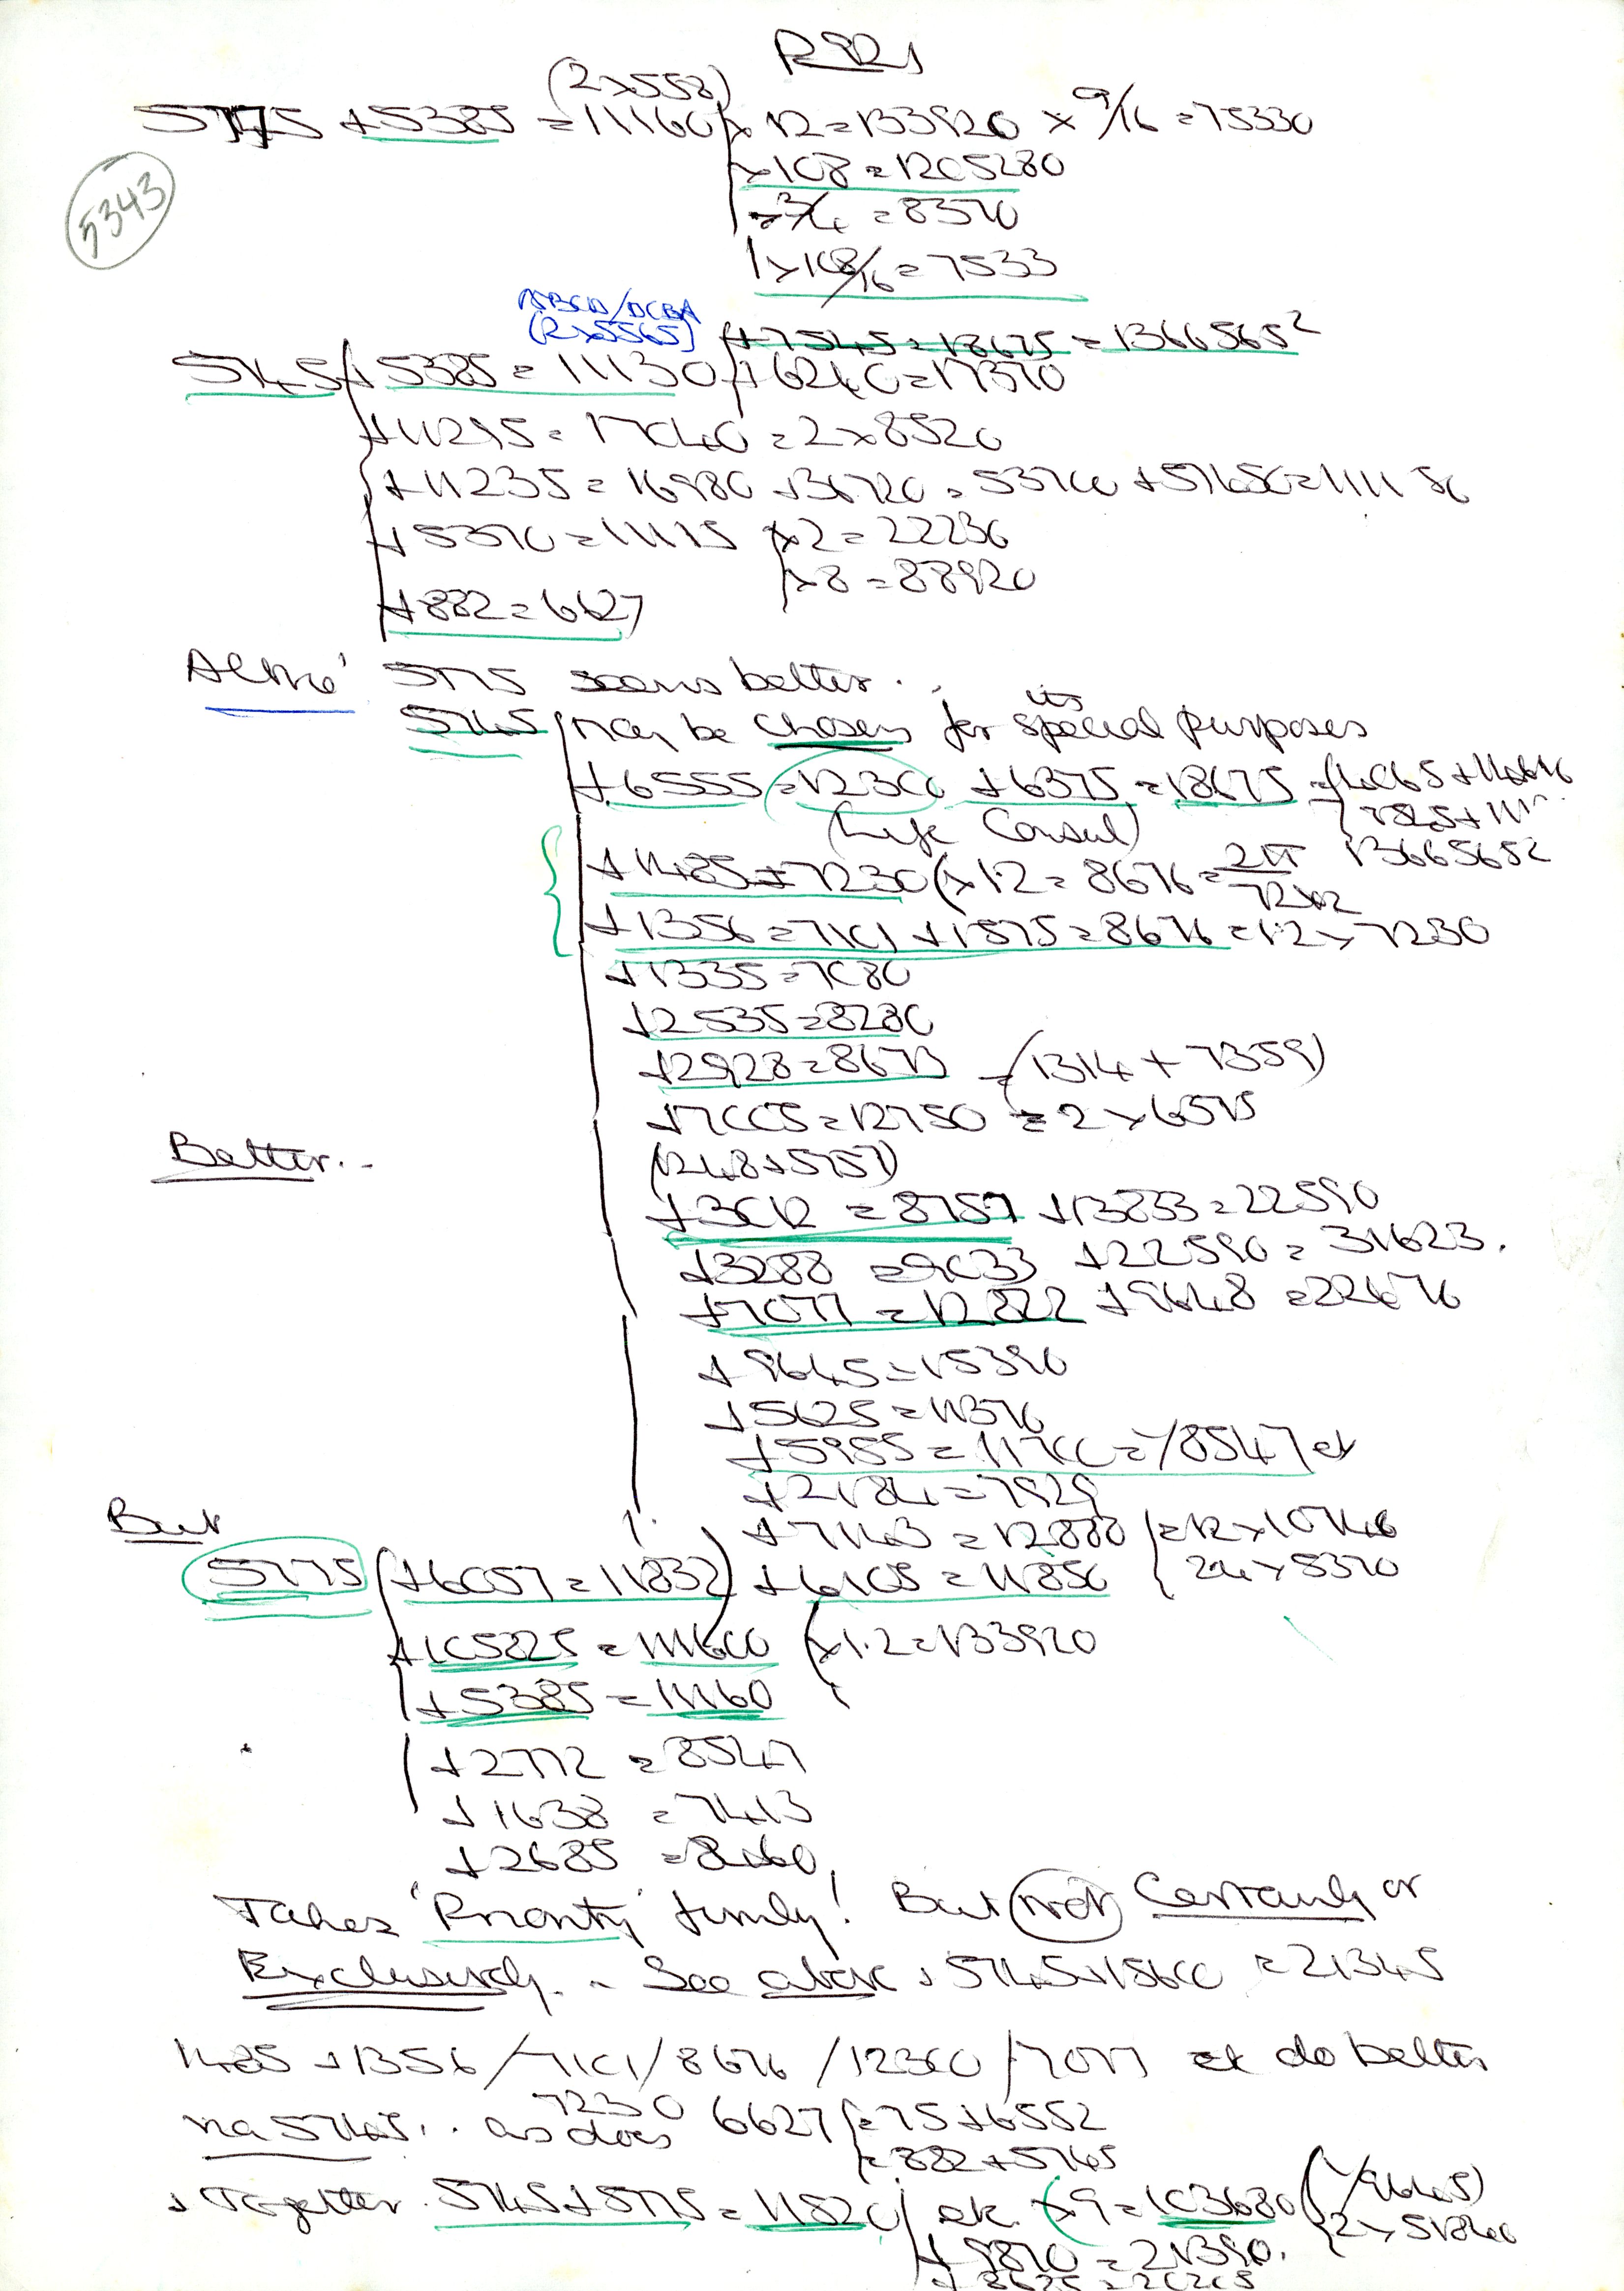 (2x558)
5775 +5385 =11160 x 12=133920 x 9/16 =75330
x108 =1205280
x3/4 =8370
x108/16=7533
5343
ABCD/DCBA
(2x5565)
+7545=18675=1366565²
5745 + 5385= 11130 +6240=17370
+11295= 17040 =2x8520
+11235= 16980 +36720=53700 +57450=111150
+5370=11115 x2=22230
x8=88920
+882=6627
5775 seems better..
its
5745 may be chosen for special purposes
+6555=12300 +6375=18675
(Life Consul)
+1485=7230 (x1.2=8676= 13665652
+1356=7101 +1575=8676=1.2x7230
+1335=7080
+2535=8280
+2928=8673 =(1314+7359)
+7005=12750 =2x6375
(1248+5757)
Better..
+3012 =8757 +13833=22590
+3288 =9033 +22590=31623.
+7077 =12822 +9648=22470
+9645=15390
+5625=11370
+5955=11700=/8547 et
+2184=7929
+7143=12888 =12x1074
24x5370
But
5775 (+6057=11832) +6105=11850
+105825=111600 (x1.2=133920
+5385=11160
+2772 =8547
+1638 =7413
+2685 =8460
Takes 'Priority' firmly! But not Certainly or
Exclusively. - See above, 5745+15600 =21345
1485+1356/7101/8676/12300/7077 et do better
7230
via 5745.. as does 6627 =75+6552
=882+5745
, Together. 5745+5775=11520 et. x9=103680 (/9645)
2x51840
+9870=21390.
+8625=20205